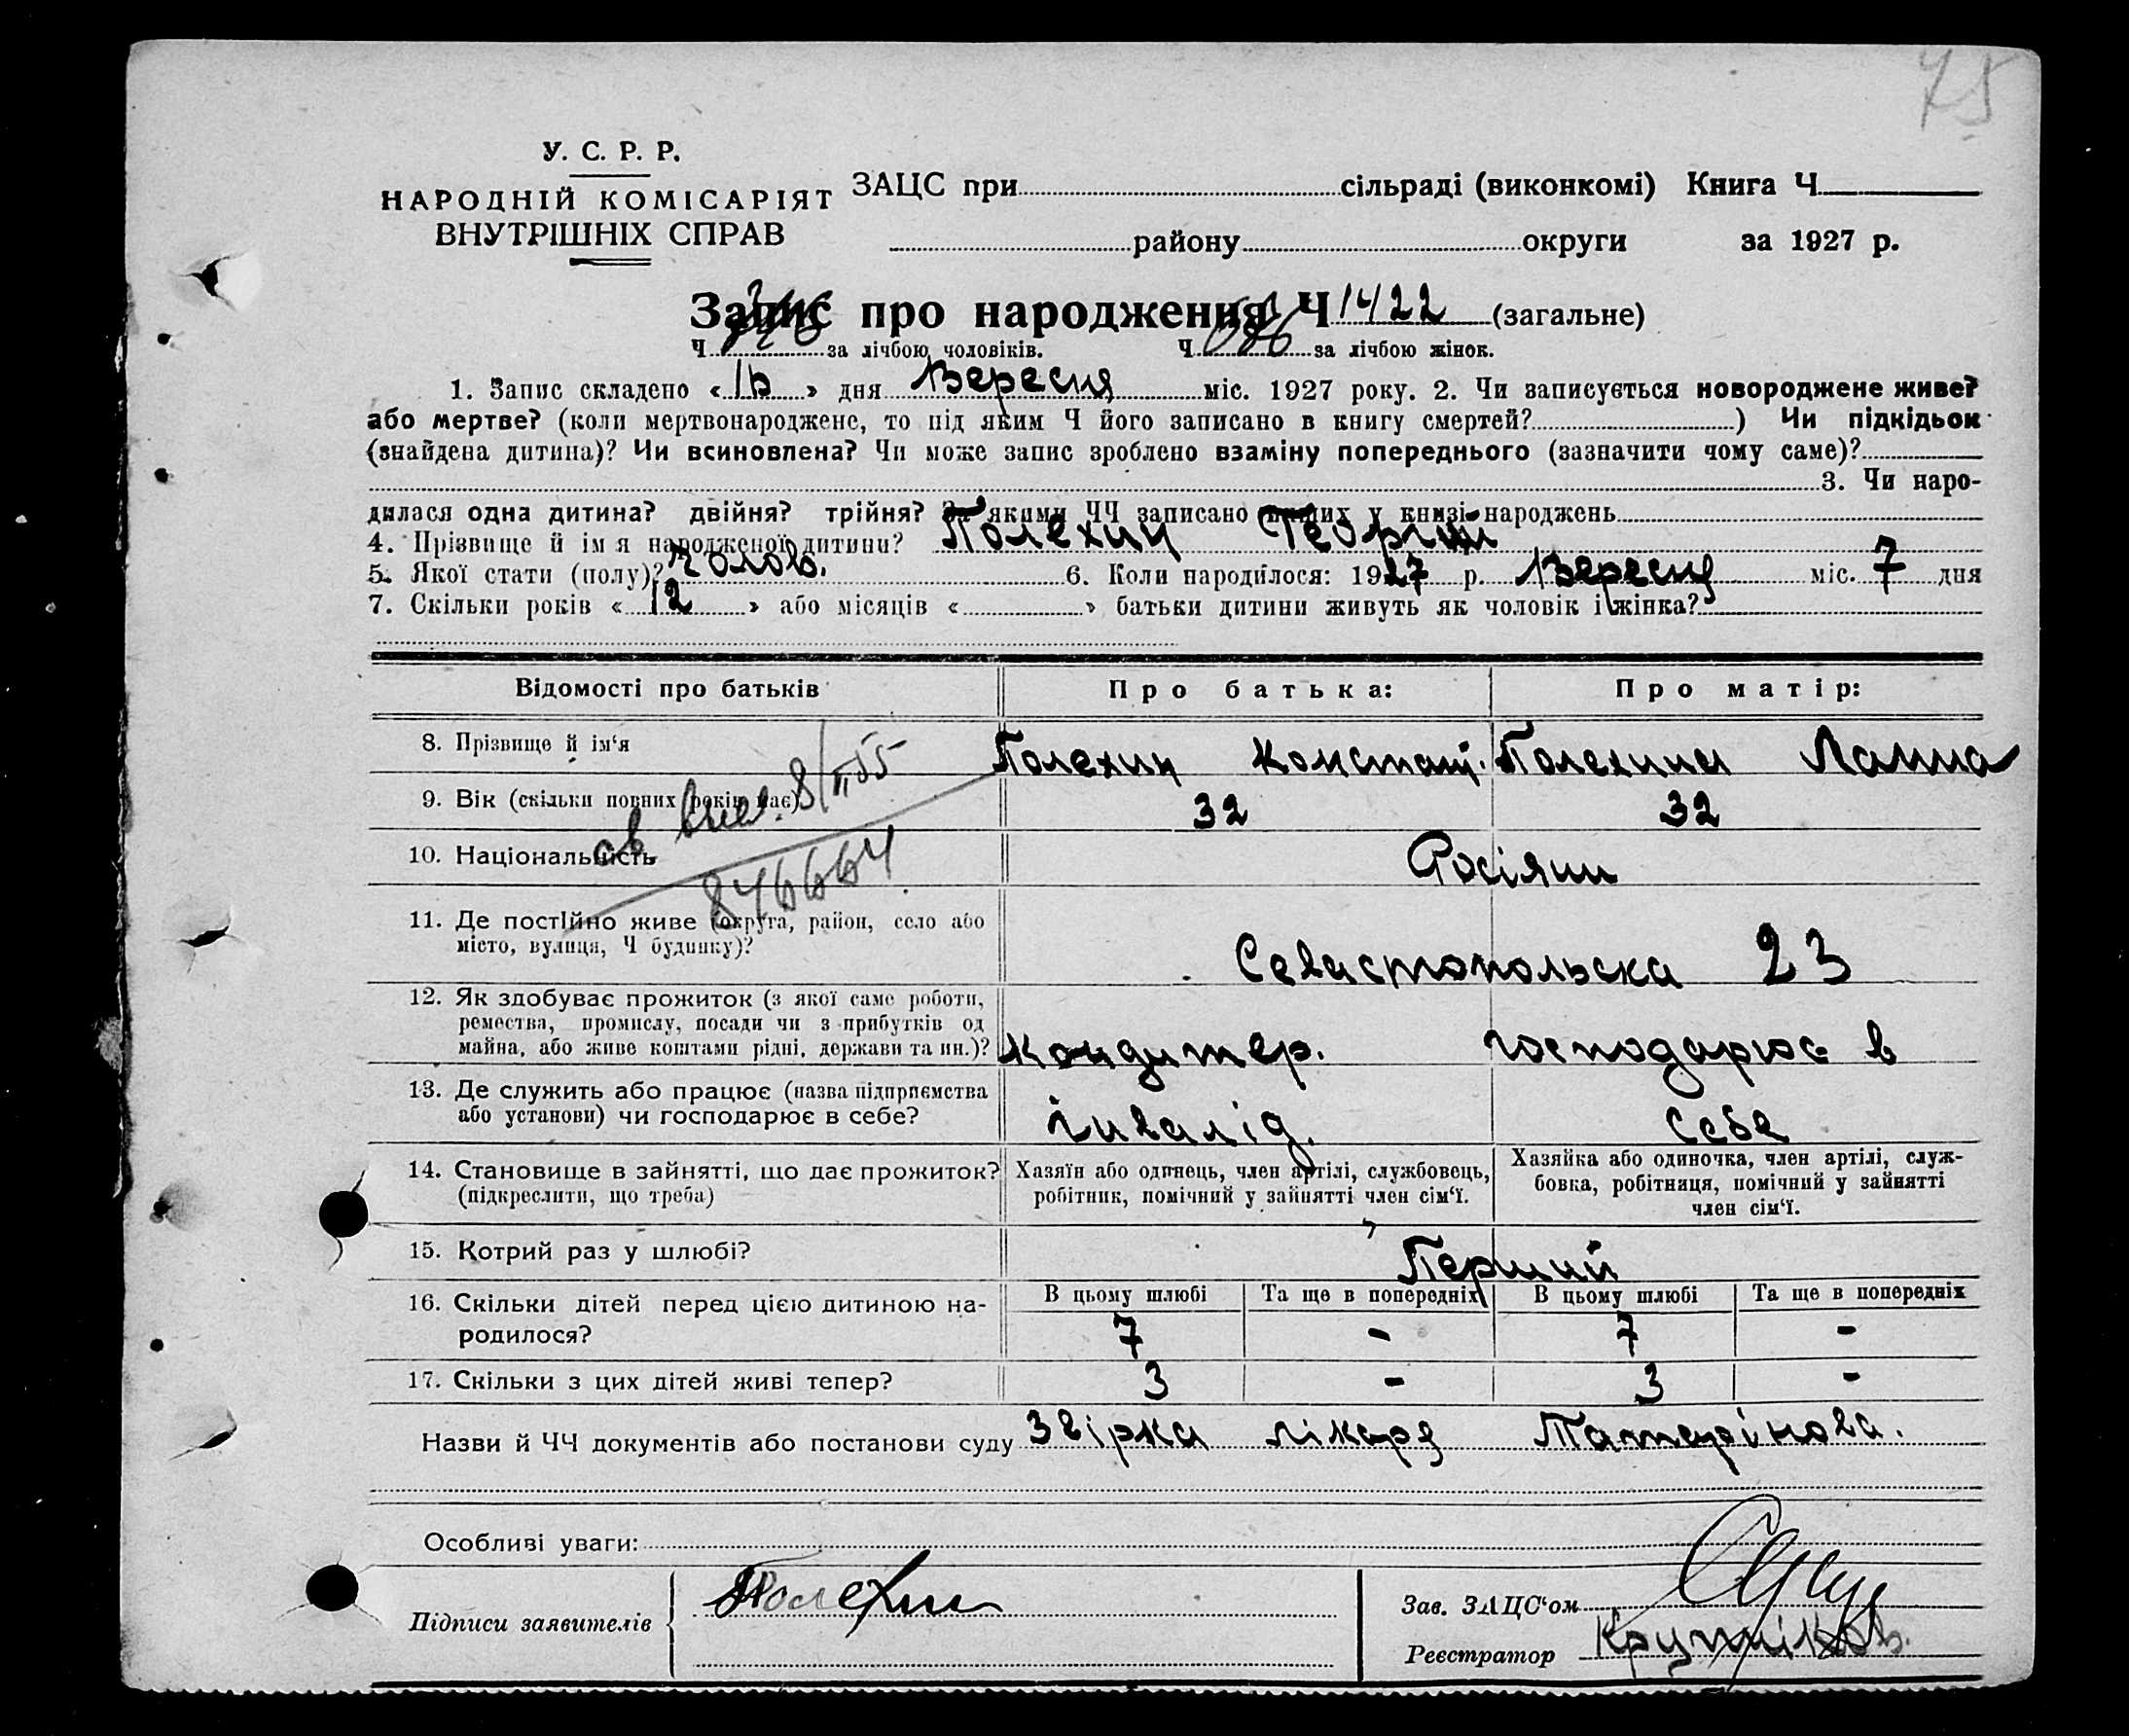 75
У. С. Р. Р.
НАРОДНІЙ КОМІСАРІЯТ
ВНУТРІШНІХ СПРАВ
ЗАЦС при сільраді (виконкомі) Книга Ч
району округи за 1927 р.
Запис про народження Ч 1422 (загальне)
Ч за лічбою чоловіків. Ч 686 за лічбою жінок.
1. Запис складено « » дня Вересня міс. 1927 року. 2. Чи записується новороджене живе?
або мертве? (коли мертвонароджене, то під яким Ч його записано в книгу смертей? ) Чи підкідьок
(знайдена дитина)? Чи всиновлена? Чи може запис зроблено взаміну попереднього (зазначити чому саме)?
3. Чи наро-
дилася одна дитина? двійня? трійня? За якими ЧЧ записано инших у книзі народжень
4. Прізвище й ім я народженої дитини? Полехин Георгій
5. Якої стати (полу)? Чолов. 6. Коли народилося: 1927 р. Вересня міс. 7 дня
7. Скільки років «12» або місяців « » батьки дитини живуть як чоловік і жінка?
Відомості про батьків Про батька: Про матір:
8. Прізвище й ім‘я Полехин Констант. Полехина
9. Вік (скільки повних років має) 32 32
8/II 55
10. Національність Росіяни
846664
11. Де постійно живе (округа, район, село або
місто, вулиця, Ч будинку)? Севастопольска 23
12. Як здобуває прожиток (з якої саме роботи,
ремества, промислу, посади чи з прибутків од
майна, або живе коштами рідні, держави та ин.)? Кондитер. господарює в
13. Де служить або працює (назва підприємства
або установи) чи господарює в себе? інвалід. себе
14. Становище в зайнятті, що дає прожиток?
(підкреслити, що треба)
Хазяїн або одинець, член артілі, службовець,
робітник, помічний у зайнятті член сім‘ї.
Хазяйка або одиночка, член артілі, служ-
бовка, робітниця, помічний у зайнятті
член сім‘ї.
15. Котрий раз у шлюбі? Перший
В цьому шлюбі Та ще в попередніх В цьому шлюбі Та ще в попередніх
16. Скільки дітей перед цією дитиною на-
родилося? 7 - 7 -
17. Скільки з цих дітей живі тепер? 3 - 3 -
Назви й ЧЧ документів або постанови суду Звірка лікаря Татарінова.
Особливі уваги:
Підписи заявителів Полехин
Зав. ЗАЦС‘ом
Реєстратор